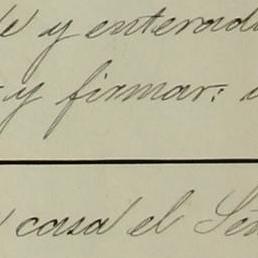 y enterad
y firmar:
casa el Señ